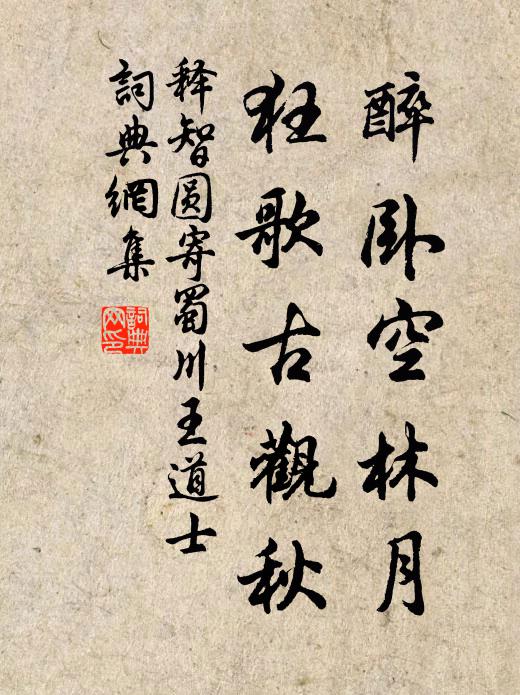 醉卧空林月
狂歌古觀秋
释智圆寄蜀川王道士
詞典網集
詞典網印